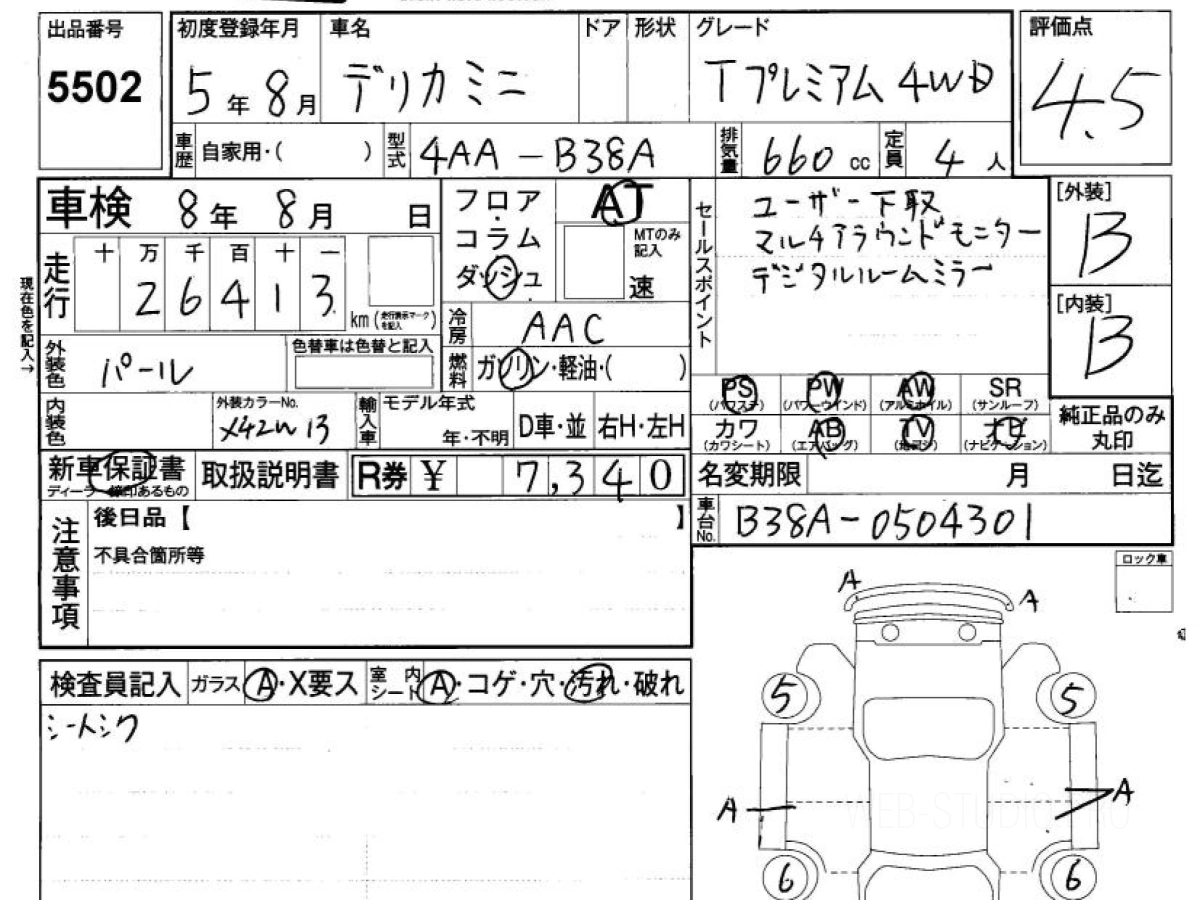 出品番号
5502
初度登録年月
5年8月
車名
デリカミニ
ドア
形状
グレード
Tプレミアム4WD
評価点
4.5
車歴
自家用・( )
型式
4AA-B38A
排気量
660cc
定員
4人
車検 8年 8月 日
フロア
コラム
ダッシュ
AT
MTのみ記入
速
セールスポイント
ユーザー下取
マルチアラウンドモニター
デジタルルームミラー
[外装]
B
[内装]
B
現在色を記入→
走行
十 万 千 百 十 一
2 6 4 1 3
km(走行表示マークを記入)
冷房
AAC
燃料
ガソリン・軽油・( )
外装色
パール
色替車は色替と記入
内装色
外装カラーNo.
X42W 13
輸入車
モデル年式
年・不明
D車・並
右H・左H
PS
(パワステ)
PW
(パワーウインド)
AW
(アルミホイル)
SR
(サンルーフ)
カワ
(カワシート)
AB
(エアバッグ)
TV
ナビ
(ナビゲーション)
純正品のみ
丸印
新車保証書
取扱説明書
R券 ¥ 7,340
名変期限
月
日迄
車台No.
B38A-0504301
注意事項
後日品【 】
不具合箇所等
ロック車
検査員記入
ガラス
A・X要ス
室内
シート
A・コゲ・穴・汚れ・破れ
シートシワ
A
A
5
5
A
A
6
6
WEB-STUDIO.PRO